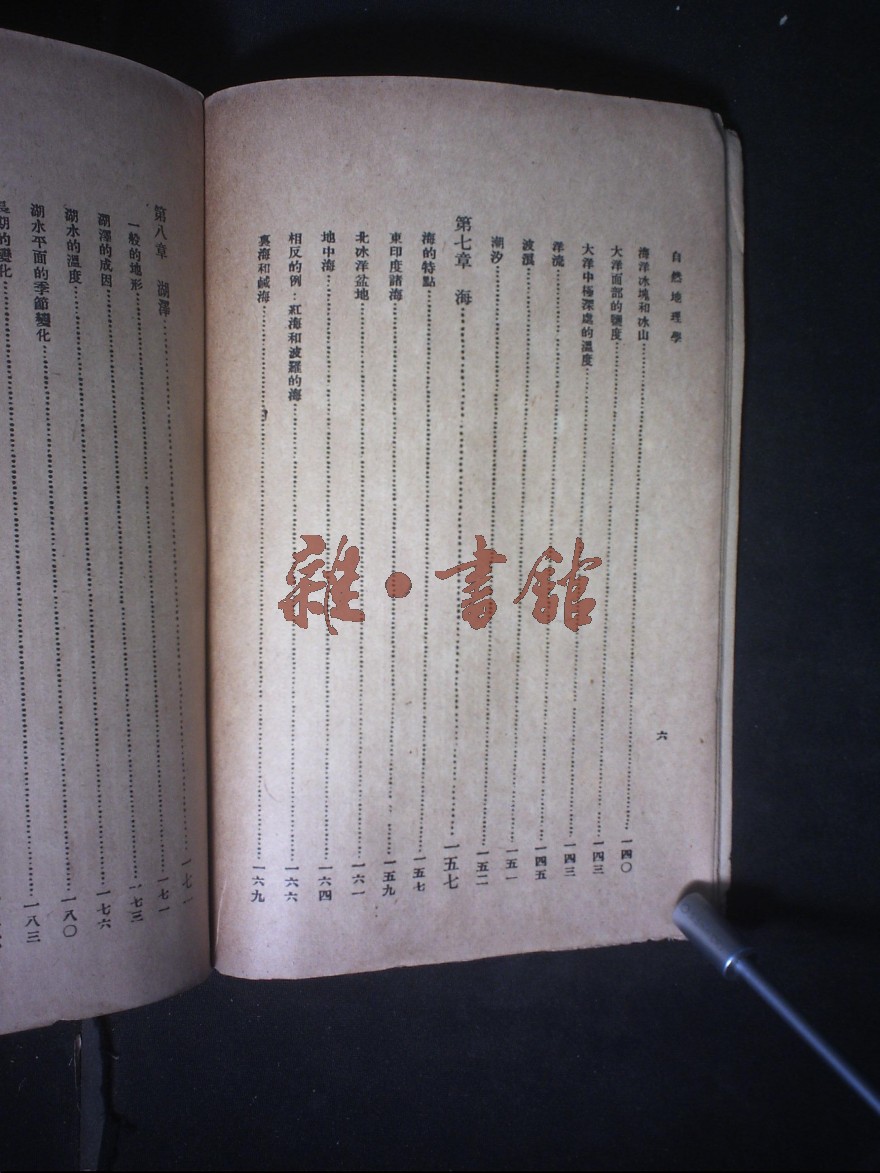 自然地理學
六
海洋冰塊和冰山⋯⋯一四〇
大洋面部的鹽度⋯⋯一四三
大洋中極深處的溫度⋯⋯一四三
洋流⋯⋯一四五
波濕⋯⋯一五一
潮汐⋯⋯一五二
第七章 海⋯⋯一五七
海的特點⋯⋯一五七
東印度諸海⋯⋯一五九
北冰洋盆地⋯⋯一六一
地中海⋯⋯一六四
相反的例：紅海和波羅的海⋯⋯一六六
裏海和鹹海⋯⋯一六九
第八章 湖澤⋯⋯一七一
一般的地形⋯⋯一七一
湖澤的成因⋯⋯一七三
湖水的溫度⋯⋯一七六
湖水平面的季節變化⋯⋯一八〇
長期的變化⋯⋯一八三
雜·書館